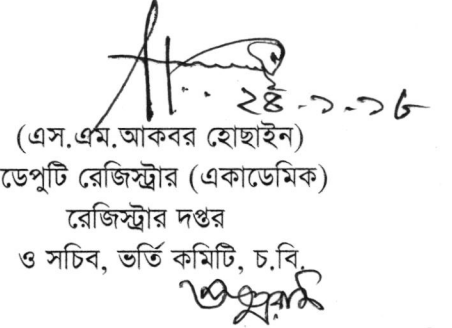 ২৪.১.১৬
(এস.এম.আকবর হোছাইন)
ডেপুটি রেজিস্ট্রার (একাডেমিক)
রেজিস্ট্রার দপ্তর
ও সচিব, ভর্তি কমিটি, চ.বি.